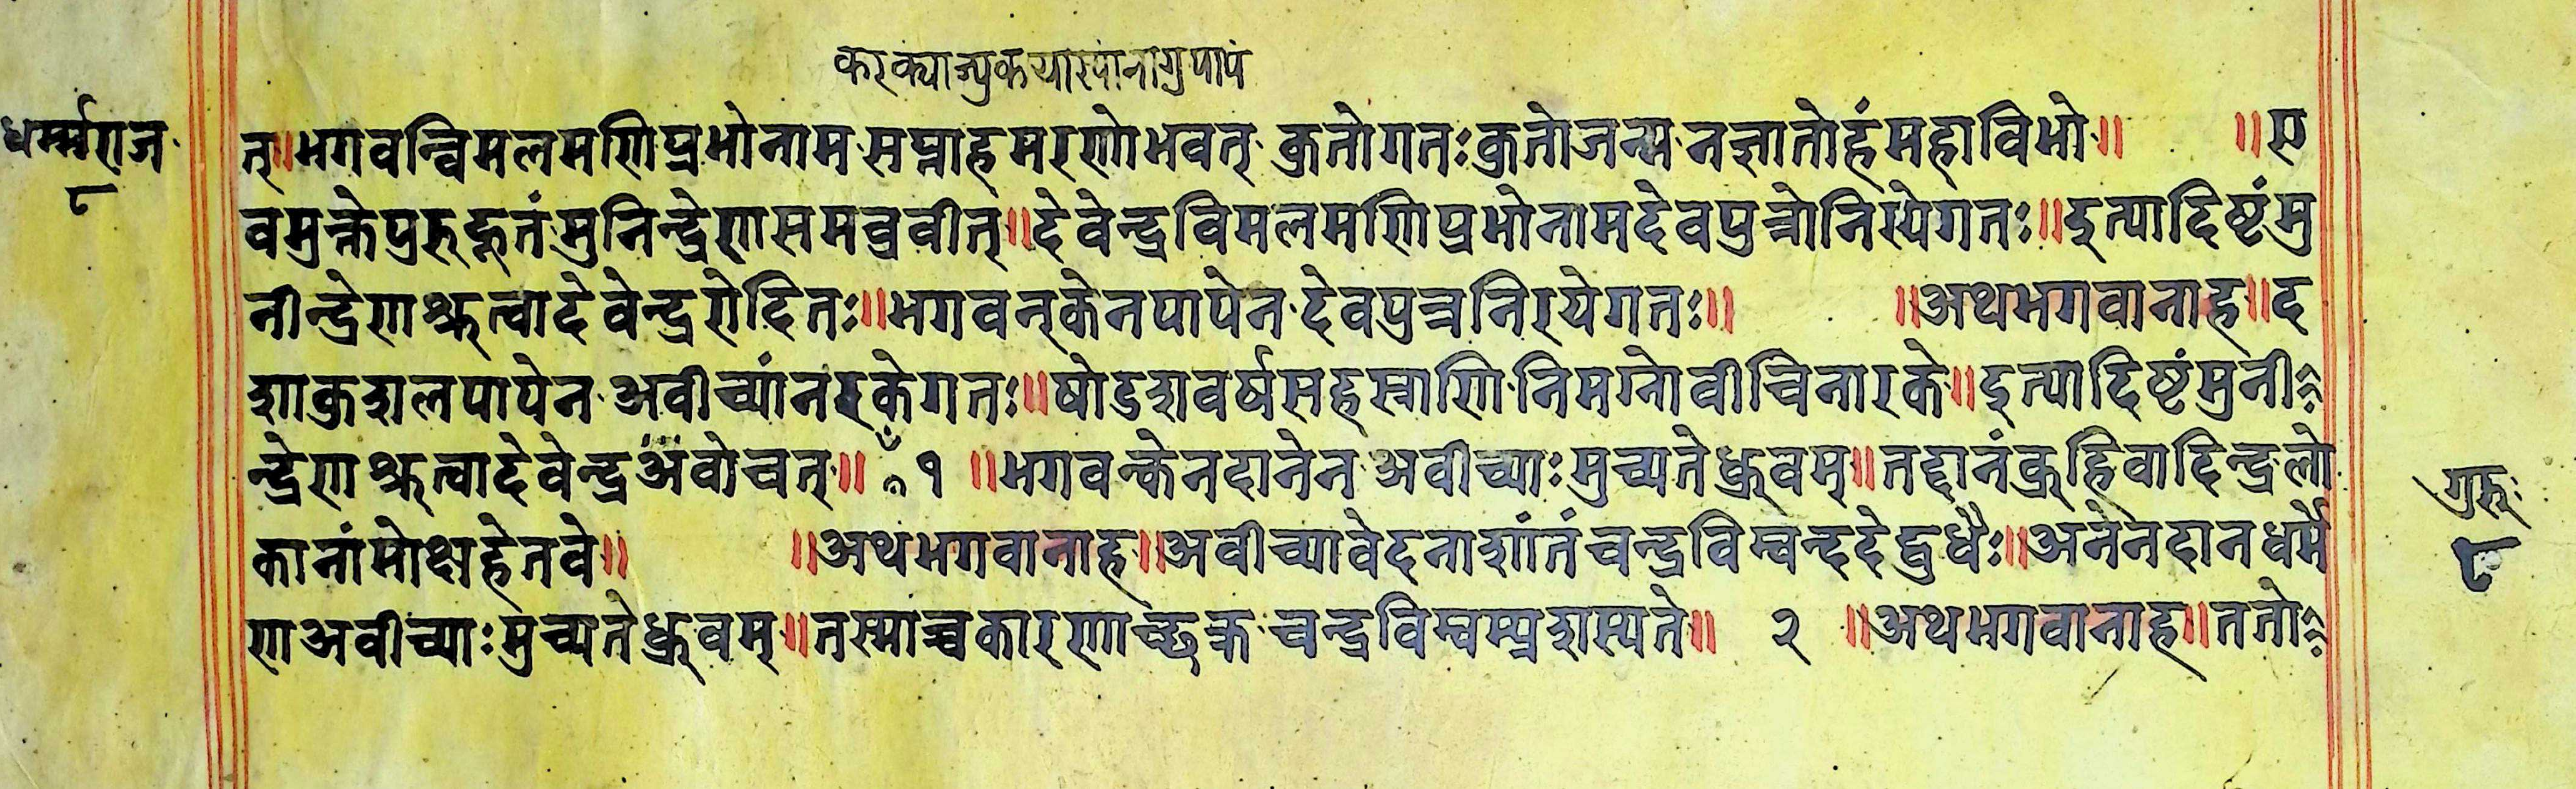 धर्म्मराज
८
त्॥भगवन्विमलमणिप्रभोनाम·सप्ताहमरणोभवत्·कुतोगतःकुतोजन्म·नज्ञातोहंमहाविभो॥ ॥ए
वमुक्तेपुरुहूतंमुनिन्द्रेणासमव्रवीत्॥देवेन्द्रविमलमणिप्रभोनामदेवपुत्रोनिरयेगतः॥इत्यादिष्टंमु
नीन्द्रेणाश्रुत्वादेवेन्द्ररोदितः॥भगवन्केनपापेन·देवपुत्रनिरयेगतः॥ ॥अथभगवानाह॥द
शाकुशलपापेन·अवीच्यांनरकेगतः॥षोडशवर्षसहस्राणि·निमग्नोवीचिनारके॥इत्यादिष्टंमुनी
न्द्रेणाश्रुत्वादेवेन्द्रअंवोचत्॥ १ ॥भगवन्केनदानेन·अवीच्याःमुच्यतेध्रुवम्॥तद्दानंब्रुहिवादिन्द्रलो
कानांमोक्षहेतवे॥ ॥अथभगवानाह॥अवीच्यावेदनाशांतंचन्द्रविम्वन्ददेद्वुधैः॥अनेनदानधर्मे
णअवीच्याःमुच्यतेध्रुवम्॥तस्माच्चकारणाच्छक्र·चन्द्रविम्वम्प्रशस्यते॥ २ ॥अथभगवानाह॥ततो
गुरुः
८